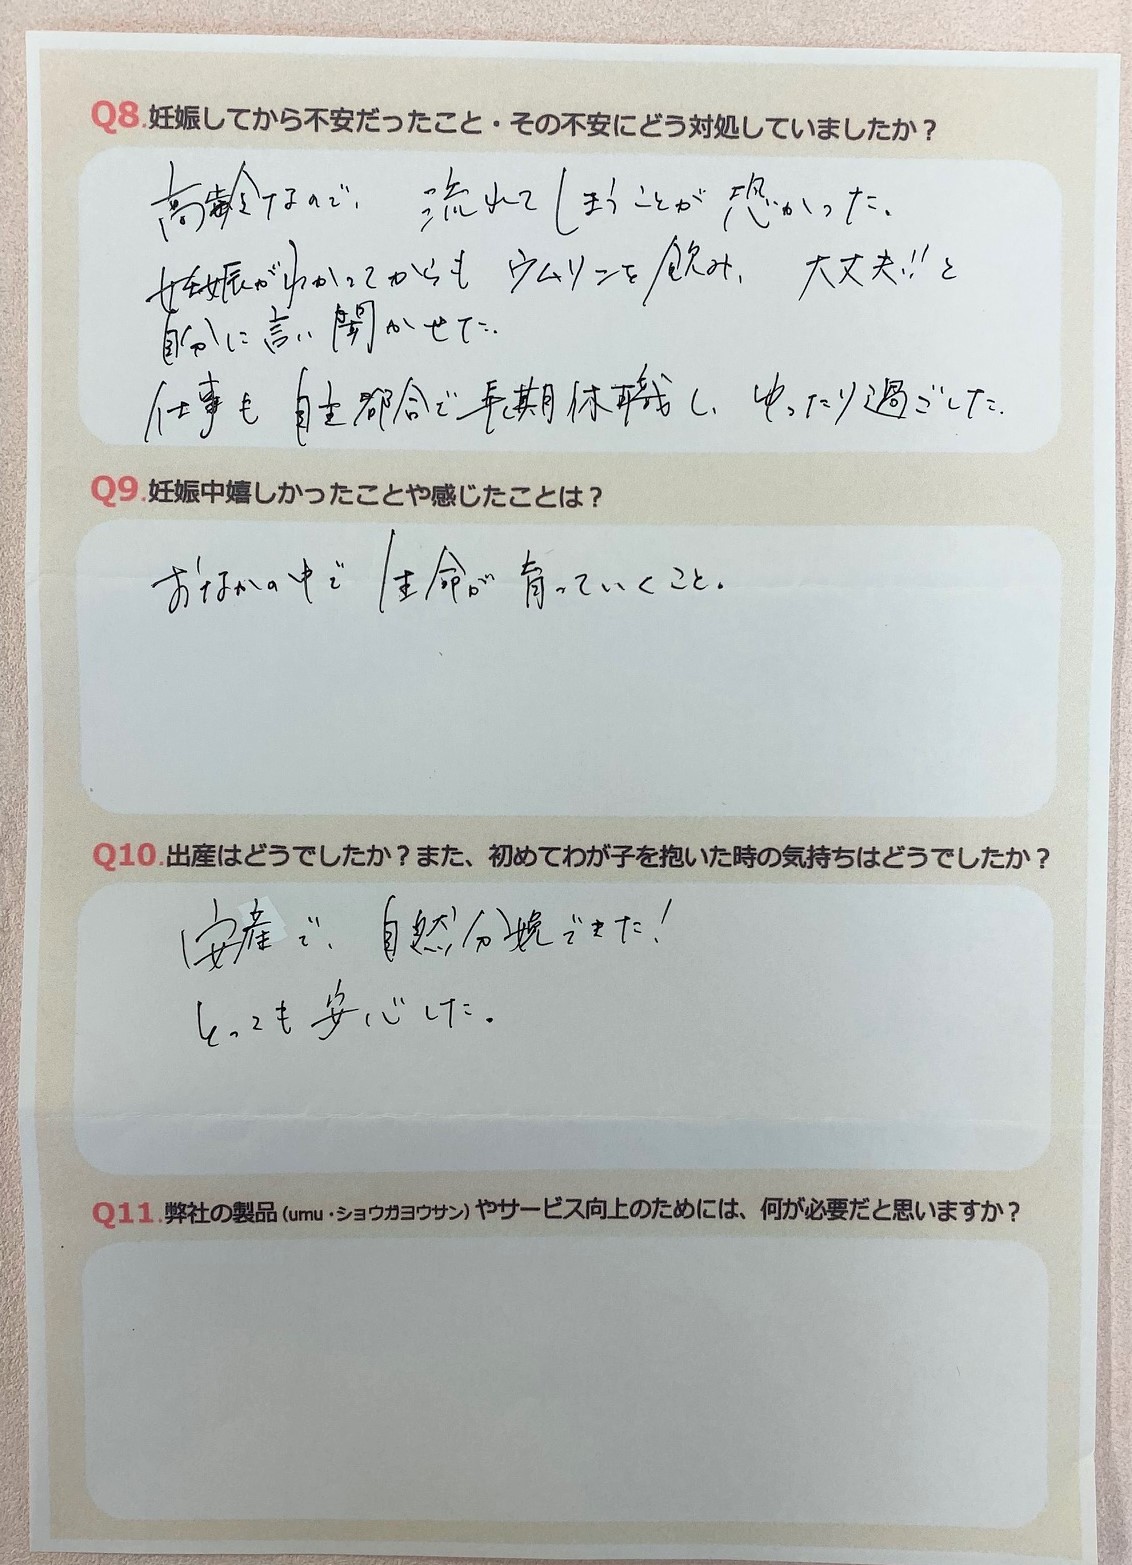 Q8.妊娠してから不安だったこと・その不安にどう対処していましたか？
高齢なので、流れてしまうことが恐かった。
妊娠がわかってからも ウムリンを飲み、大丈夫!!と
自分に言い聞かせた。
仕事も 自主都合で長期休職し、ゆったり過ごした。
Q9.妊娠中嬉しかったことや感じたことは？
おなかの中で 生命が 育っていくこと。
Q10.出産はどうでしたか？また、初めてわが子を抱いた時の気持ちはどうでしたか？
安産で、自然分娩できた！
とっても安心した。
Q11.弊社の製品（umu・ショウガヨウサン）やサービス向上のためには、何が必要だと思いますか？